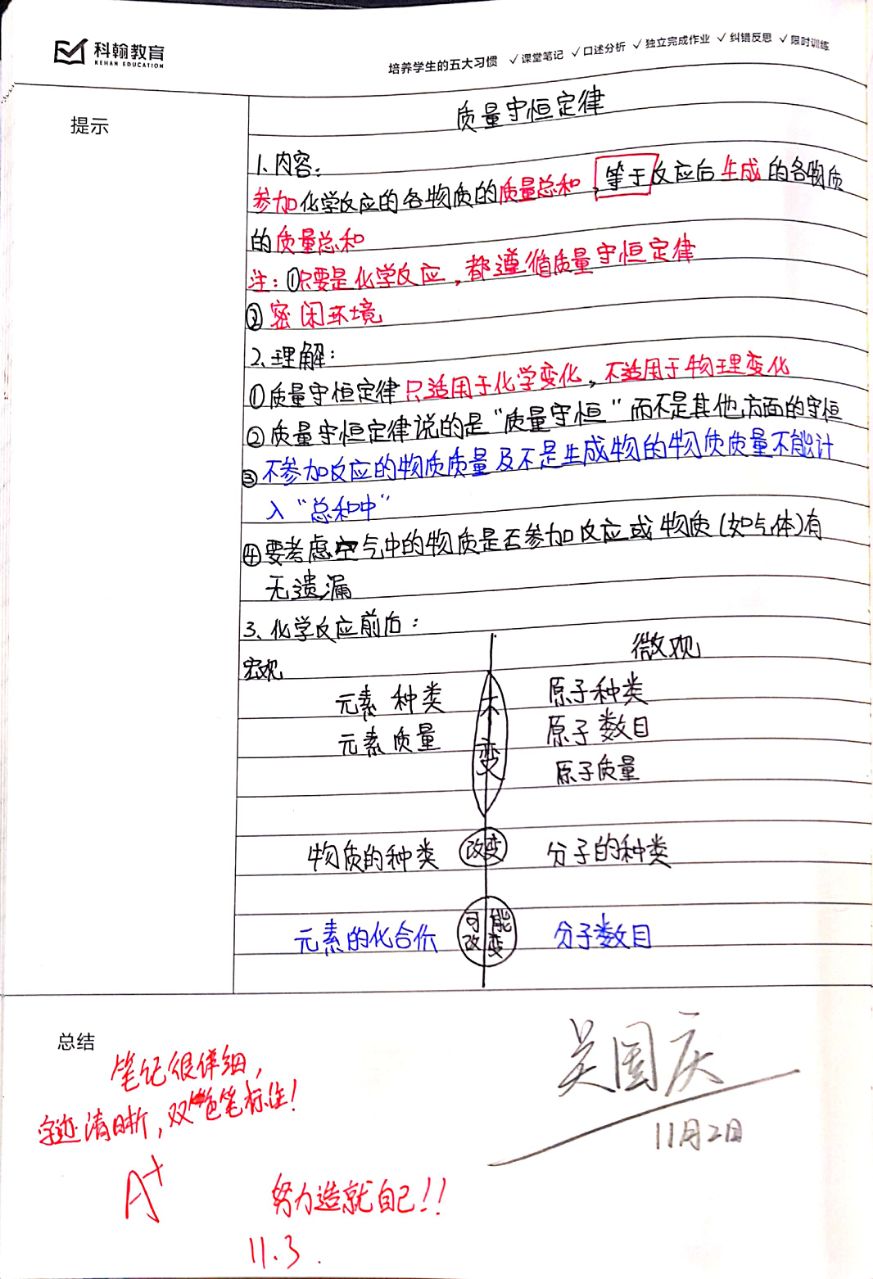 科翰教育
KEHAN EDUCATION
培养学生的五大习惯 ✓课堂笔记 ✓口述分析 ✓独立完成作业 ✓纠错反思 ✓限时训练
提示
质量守恒定律
1、内容:
参加化学反应的各物质的质量总和,等于反应后生成的各物质
的质量总和
注:①只要是化学反应,都遵循质量守恒定律
②密闭环境
2、理解:
①质量守恒定律只适用于化学变化,不适用于物理变化
②质量守恒定律说的是“质量守恒”而不是其他方面的守恒
③不参加反应的物质质量及不是生成物的物质质量不能计
入“总和中”
④要考虑空气中的物质是否参加反应或物质(如气体)有
无遗漏
3、化学反应前后:
宏观 微观
元素种类 不变 原子种类
元素质量 原子数目
原子质量
物质的种类 改变 分子的种类
元素的化合价 可能改变 分子数目
总结
笔记很详细,
字迹清晰,双色笔标注!
A+
努力造就自己!!
11.3.
吴国庆
11月2日